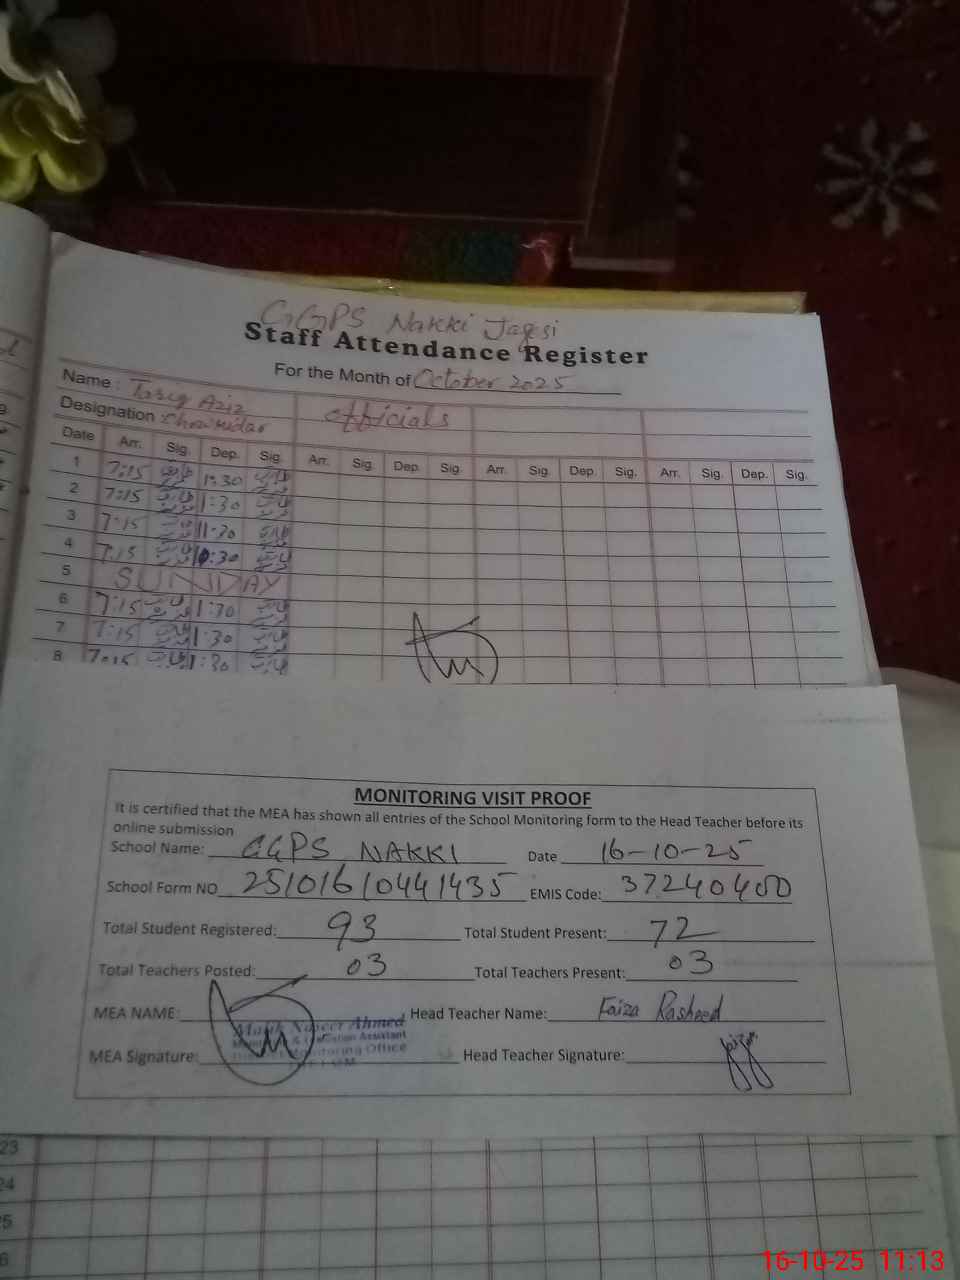 GGPS Nakki Jagesi
Staff Attendance Register
For the Month of October 2025
Name : Tariq Aziz Officials
Designation : Chowkidar
Date Arr. Sig. Dep. Sig. Arr. Sig. Dep. Sig. Arr. Sig. Dep. Sig. Arr. Sig. Dep. Sig.
1 7:15 طارق 1:30 طارق
2 7:15 طارق 1:30 طارق
3 7:15 طارق 11:30 طارق
4 7:15 طارق 1:30 طارق
5 SUNDAY
6 7:15 طارق 1:30 طارق
7 7:15 طارق 1:30 طارق
8 7:15 طارق 1:30 طارق
MONITORING VISIT PROOF
It is certified that the MEA has shown all entries of the School Monitoring form to the Head Teacher before its
online submission
School Name: GGPS NAKKI Date 16-10-25
School Form NO 25101610441435 EMIS Code: 37240400
Total Student Registered: 93 Total Student Present: 72
Total Teachers Posted: 03 Total Teachers Present: 03
MEA NAME: Head Teacher Name: Faiza Rasheed
Malik Naseer Ahmed
Monitoring & Evaluation Assistant
Monitoring Office
MEA Signature: Head Teacher Signature:
23
24
5
6
16-10-25 11:13